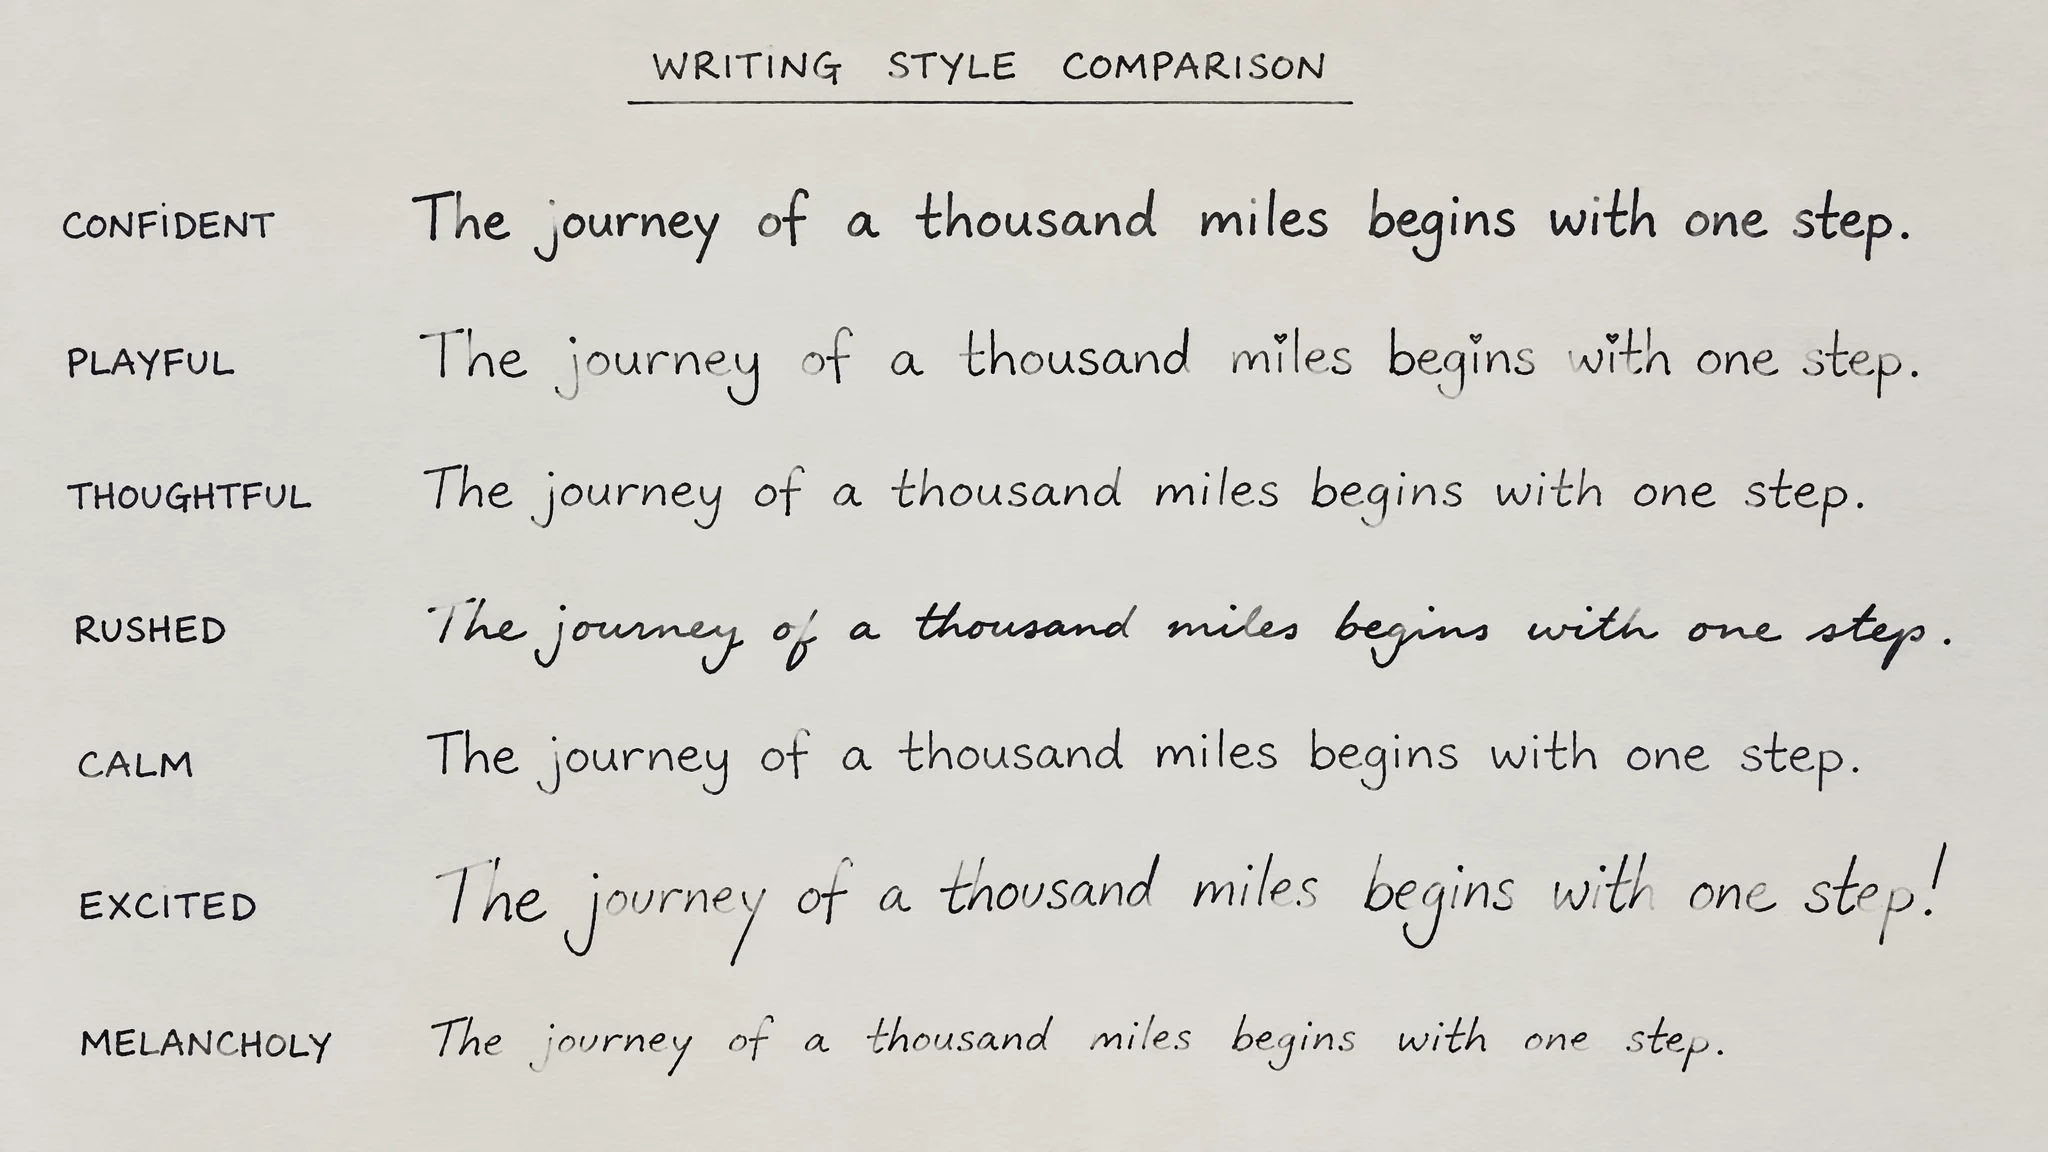 WRITING STYLE COMPARISON
CONFIDENT The journey of a thousand miles begins with one step.
PLAYFUL The journey of a thousand miles begins with one step.
THOUGHTFUL The journey of a thousand miles begins with one step.
RUSHED The journey of a thousand miles begins with one step.
CALM The journey of a thousand miles begins with one step.
EXCITED The journey of a thousand miles begins with one step!
MELANCHOLY The journey of a thousand miles begins with one step.